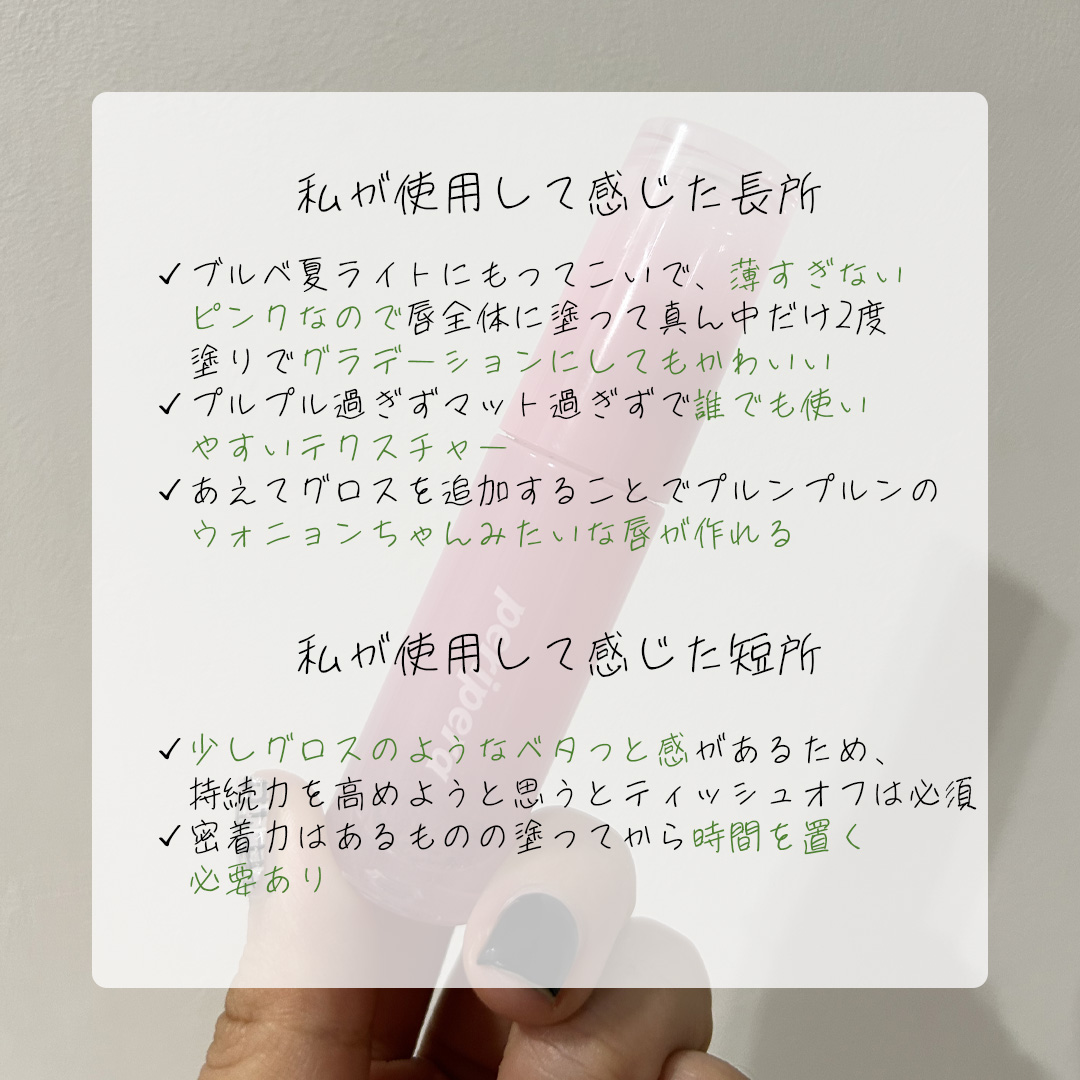 私が使用して感じた長所
✓ブルベ夏ライトにもってこいで、薄すぎない
ピンクなので唇全体に塗って真ん中だけ2度
塗りでグラデーションにしてもかわいい
✓プルプル過ぎずマット過ぎずで誰でも使い
やすいテクスチャー
✓あえてグロスを追加することでプルンプルンの
ウォニョンちゃんみたいな唇が作れる
peripera
私が使用して感じた短所
✓少しグロスのようなベタっと感があるため、
持続力を高めようと思うとティッシュオフは必須
✓密着力はあるものの塗ってから時間を置く
必要あり